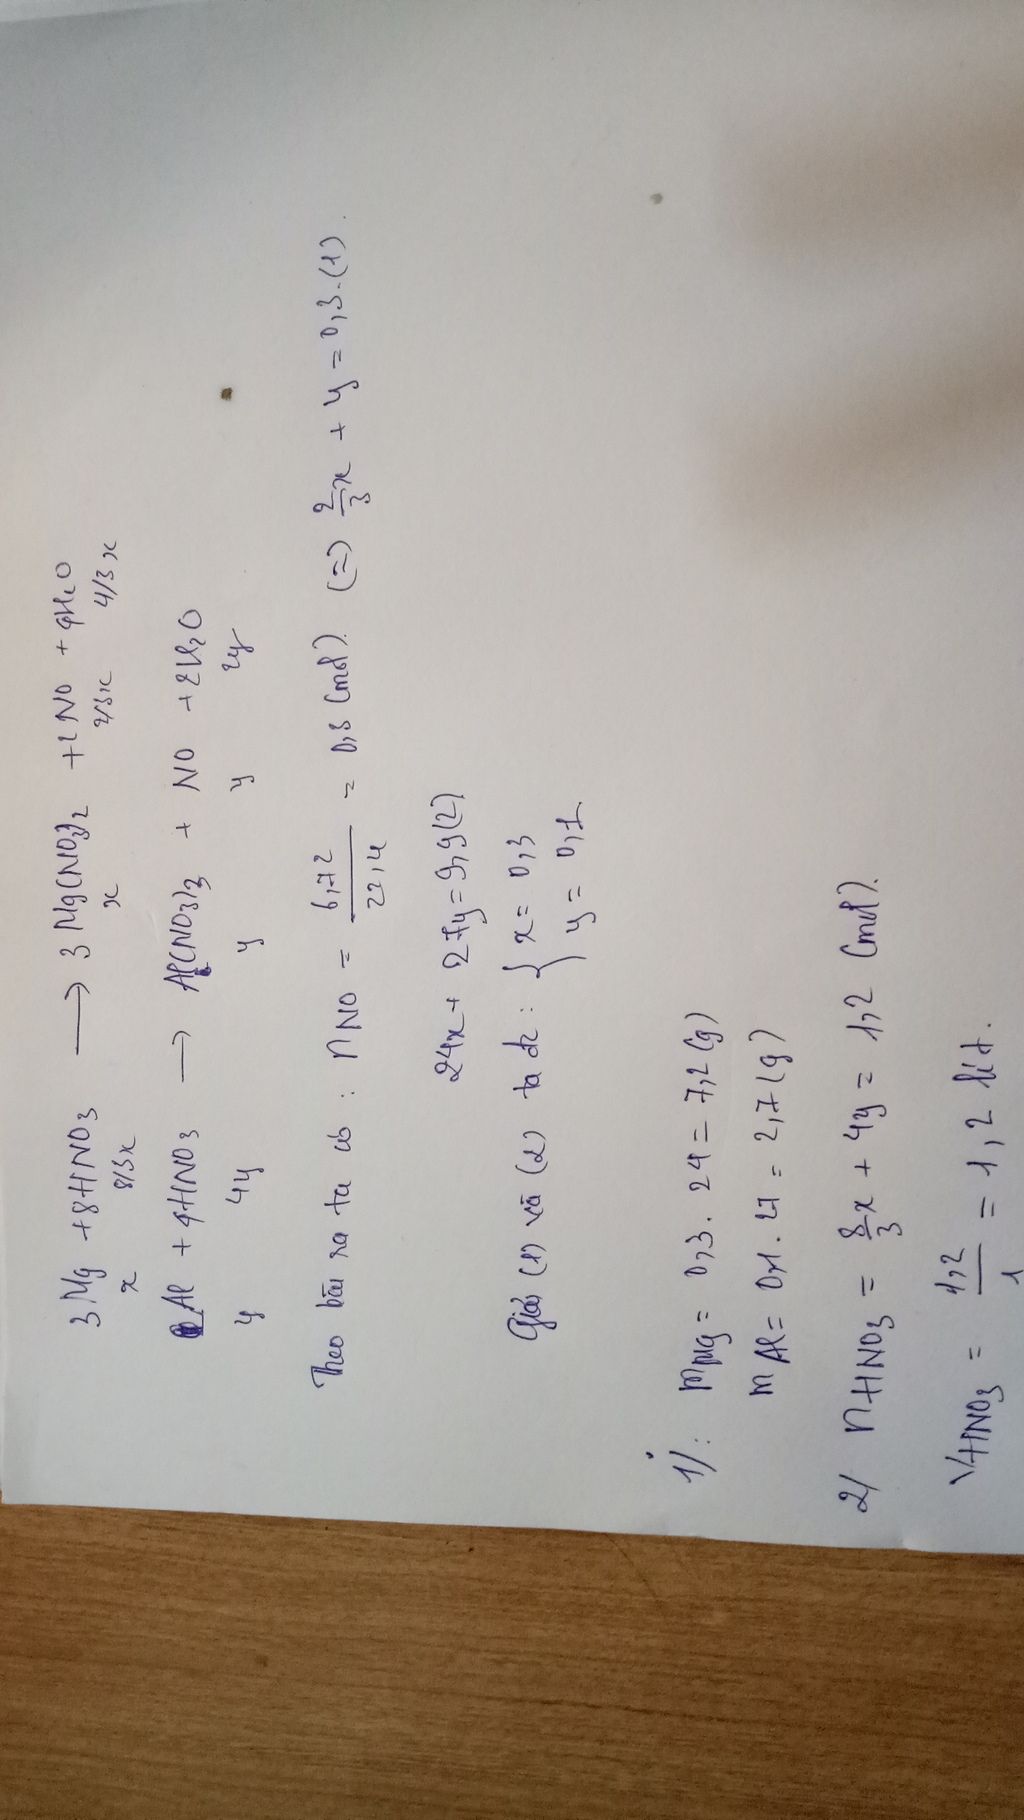 3Mg + 8HNO3 → 3Mg(NO3)2 + 2NO + 4H2O
x 8/3x x 2/3x 4/3x
Al + 4HNO3 → Al(NO3)3 + NO + 2H2O
y 4y y y 2y
Theo bài ra ta có : nNO = 6,72/22,4 = 0,3 (mol). (=) 2/3x + y = 0,3. (1).
24x + 27y = 9,9 (2)
Giải (1) và (2) ta đc : { x = 0,3
y = 0,1
1/: mMg = 0,3. 24 = 7,2 (g)
mAl = 0,1. 27 = 2,7 (g)
2/ nHNO3 = 8/3x + 4y = 1,2 (mol).
VHNO3 = 1,2/1 = 1,2 lít.